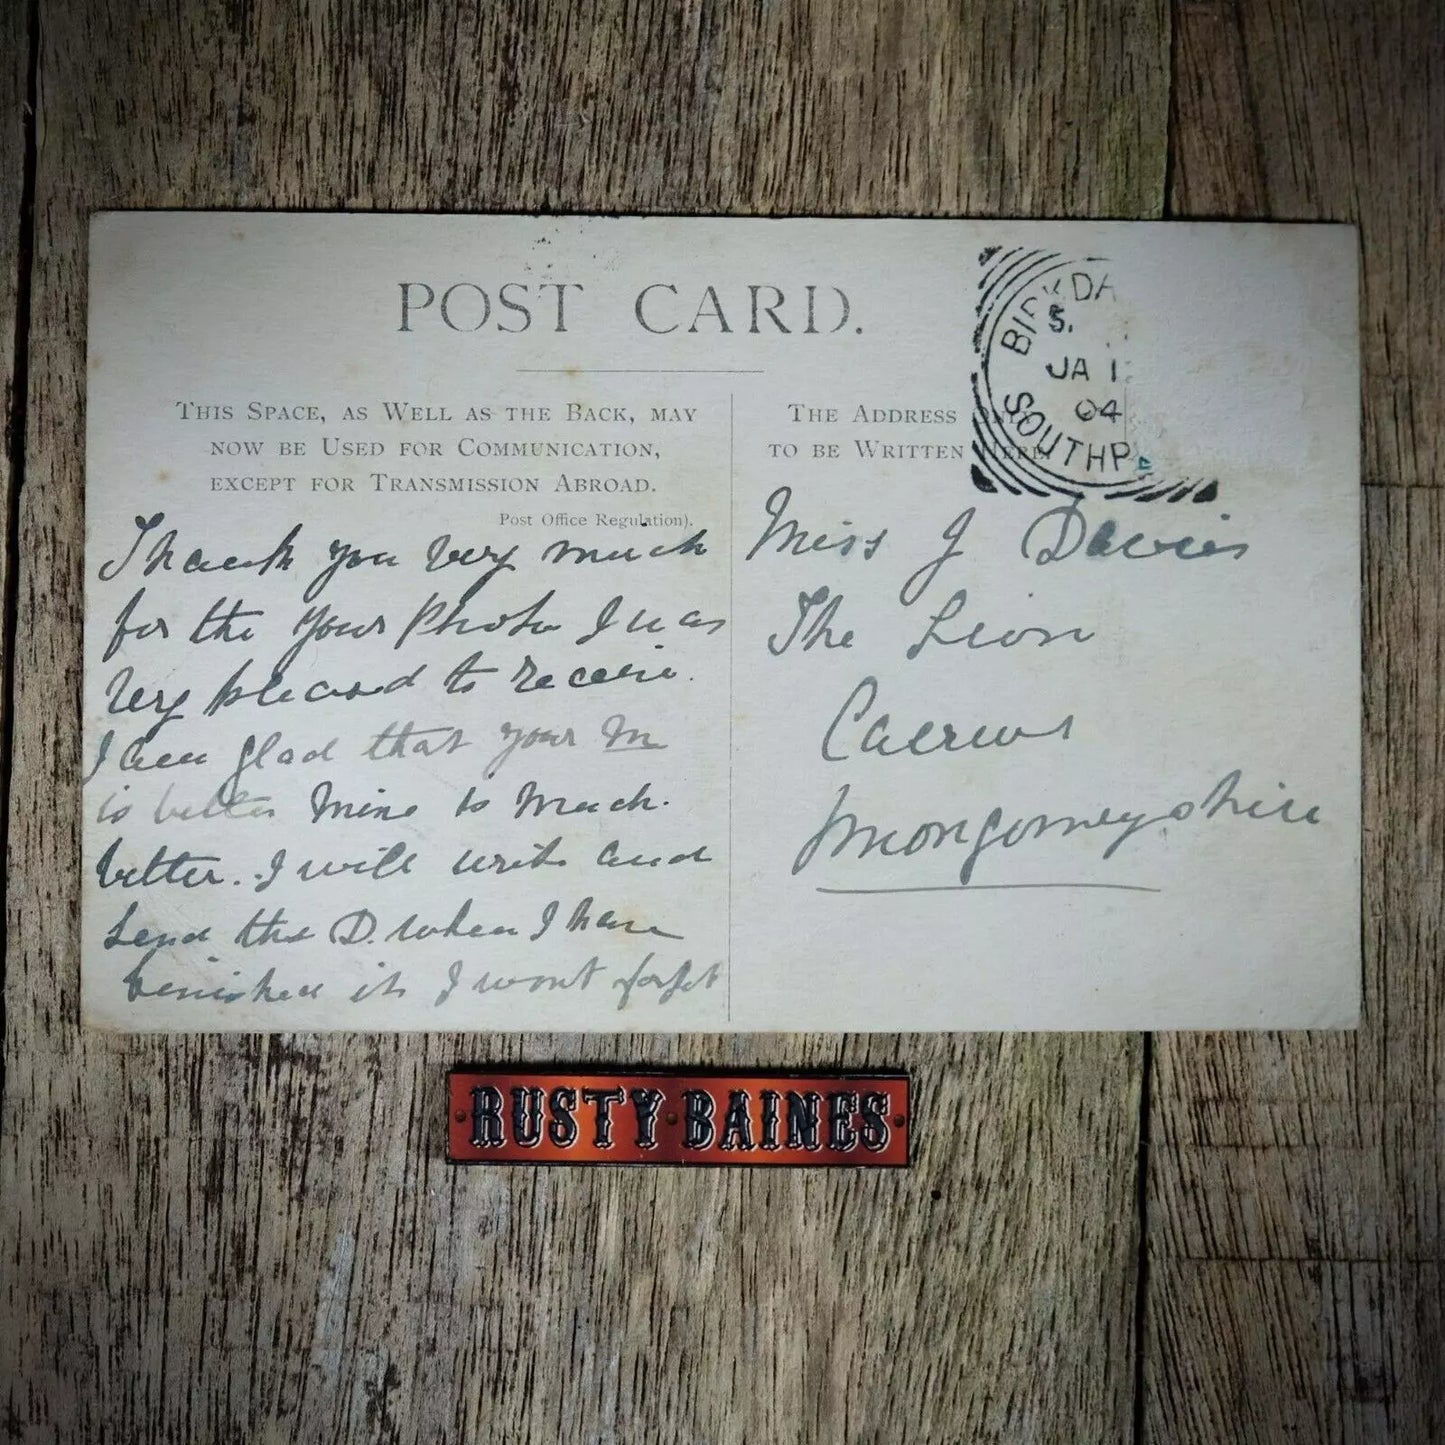 POST CARD.
THIS SPACE, AS WELL AS THE BACK, MAY
NOW BE USED FOR COMMUNICATION,
EXCEPT FOR TRANSMISSION ABROAD.
Post Office Regulation).
THE ADDRESS
TO BE WRITTEN HERE
JA 1
04
SOUTHP
Thank you very much
for the your Photo I was
very pleased to receive.
I am glad that your M
is better Mine is Much.
better. I will write and
send the D. when I have
finished it I wont forget
Miss J Davies
The Lion
Caersws
Montgomeryshire
RUSTY BAINES